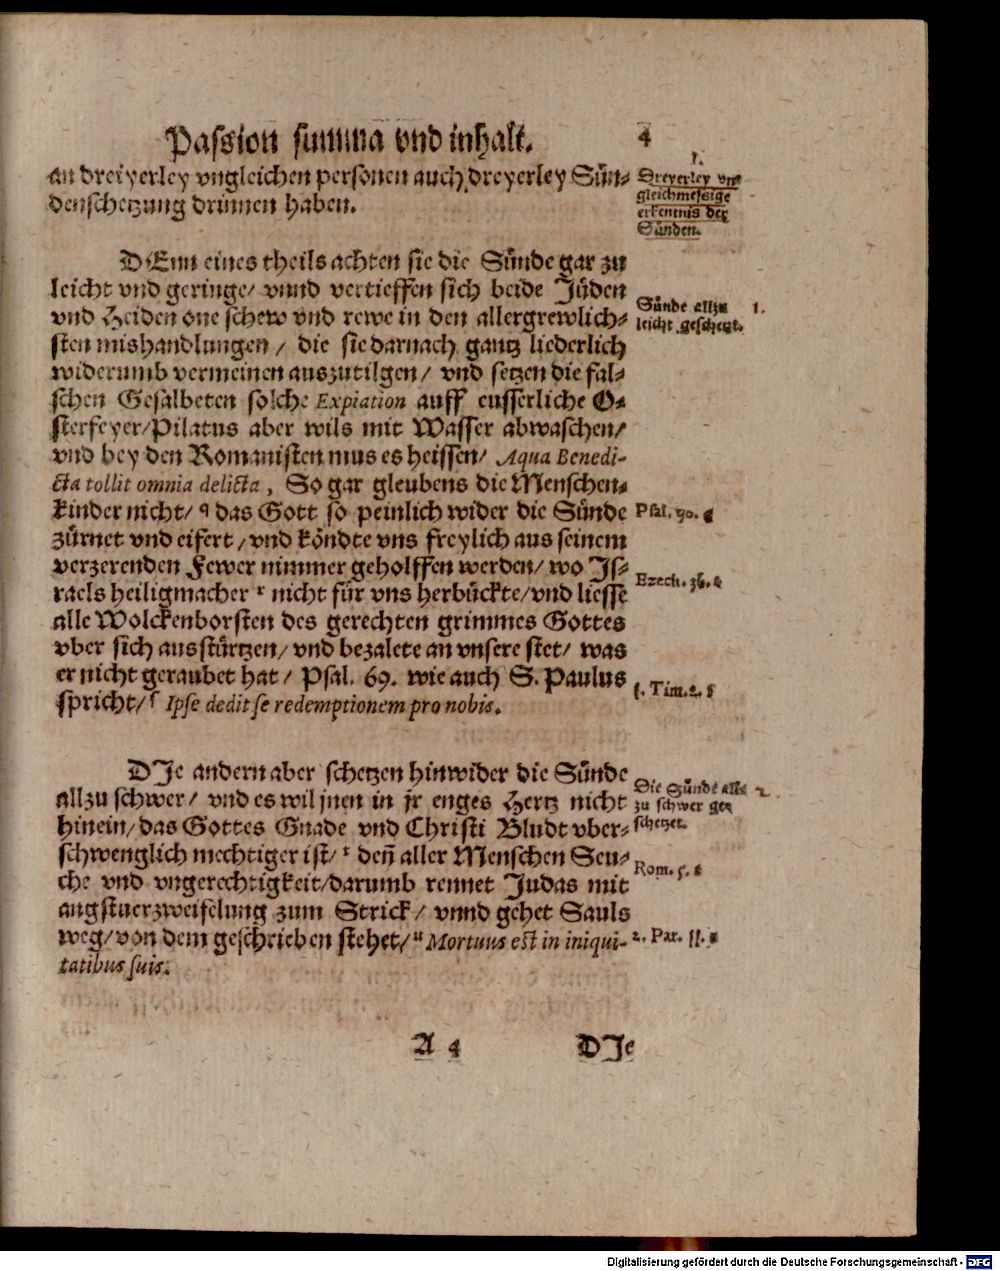 Passion summa vnd inhalt.
4
an dreiyerley vngleichen personen auch dreyerley Sün-
denschetzung drinnen haben.
1.
Dreyerley vn-
gleichmessige
erkentnis der
Sünden.
DEnn eines theils achten sie die Sünde gar zu
leicht vnd geringe/ vnnd vertieffen sich beide Jüden
vnd Heiden one schew vnd rewe in den allergrewlich-
sten mishandlungen/ die sie darnach gantz liederlich
widerumb vermeinen auszutilgen/ vnd setzen die fal-
schen Gesalbeten solche Expiation auff eusserliche O-
sterfeyer/Pilatus aber wils mit Wasser abwaschen/
vnd bey den Romanisten mus es heissen/ Aqua Benedi-
cta tollit omnia delicta, So gar gleubens die Menschen-
kinder nicht/ q das Gott so peinlich wider die Sünde
zürnet vnd eifert/vnd köndte vns freylich aus seinem
verzerenden Fewer nimmer geholffen werden/ wo Js-
raels heiligmacher r nicht für vns herbückte/vnd liesse
alle Wolckenborsten des gerechten grimmes Gottes
vber sich ausstürtzen/ vnd bezalete an vnsere stet/ was
er nicht geraubet hat/ Psal. 69. wie auch S. Paulus
spricht/ſ Ipse dedit se redemptionem pro nobis.
Sünde allzu 1.
leicht geschetzt.
Psal. 90. q
Ezech. 36. r
1. Tim. 2. ſ
DJe andern aber schetzen hinwider die Sünde
allzu schwer/ vnd es wil jnen in jr enges Hertz nicht
hinein/das Gottes Gnade vnd Christi Bludt vber-
schwenglich mechtiger ist/ t deñ aller Menschen Seu-
che vnd vngerechtigkeit/darumb rennet Judas mit
angstuerzweifelung zum Strick/ vnnd gehet Sauls
weg/von dem geschrieben stehet/u Mortuus est in iniqui-
tatibus suis.
Die Sünde all- 2.
zu schwer ge-
schetzet.
Rom. 5. t
2. Par. 11. u
A 4
DJe
Digitalisierung gefördert durch die Deutsche Forschungsgemeinschaft - DFG